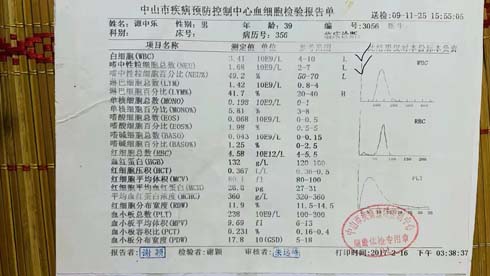 中山市疾病预防控制中心血细胞检验报告单
送检:09-11-25 15:55:05
姓名:谭中乐 性别:男 年龄:39 编号:3056
科别: 床号: 病历号:356 临床诊断:
项目名称 测定值 单位 参考范围
白细胞(WBC) 3.41 10E9/L 4-10 L
嗜中性粒细胞总数(NEU) 1.68 10E9/L 2-7 L
嗜中性粒细胞百分比(NEU%) 49.2 % 50-70 L
淋巴细胞总数(LYM) 1.42 10E9/L 0.8-4
淋巴细胞百分比(LYM%) 41.7 % 20-40 H
单核细胞总数(MONO) 0.198 10E9/L 0-1
单核细胞百分比(MONO%) 5.81 % 3-8
嗜酸细胞总数(EOS) 0.068 10E9/L 0-0.5
嗜酸细胞百分比(EOS%) 1.98 % 0.5-5
嗜碱细胞总数(BASO) 0.043 10E9/L 0-0.15
嗜碱细胞百分比(BASO%) 1.25 % 0-2.5
红细胞总数(RBC) 4.58 10E12/L 4-5.5
血红蛋白(HGB) 132 g/L 120-160
红细胞压积(HCT) 0.367 L/L
红细胞平均体积(MCV) 80-100
红细胞平均血红蛋白(MCH) 28.8 pg 27-31
360 g/L 320-360
红细胞分布宽度(RDW) 11.9 % 11.5-14.5
血小板总数(PLT) 228 10E9/L 100-300
血小板平均体积(MPV) 9.69 fl 6-13
血小板容积比(PCT) 0.231 % 0.16-0.4
血小板分布宽度(PDW) 17.8 10(GSD) 5-18
WBC
RBC
PLT
报告者:谢颖 检验者:谢颖 审核者: 打印时间:2017-2-16 下午 03:38:37